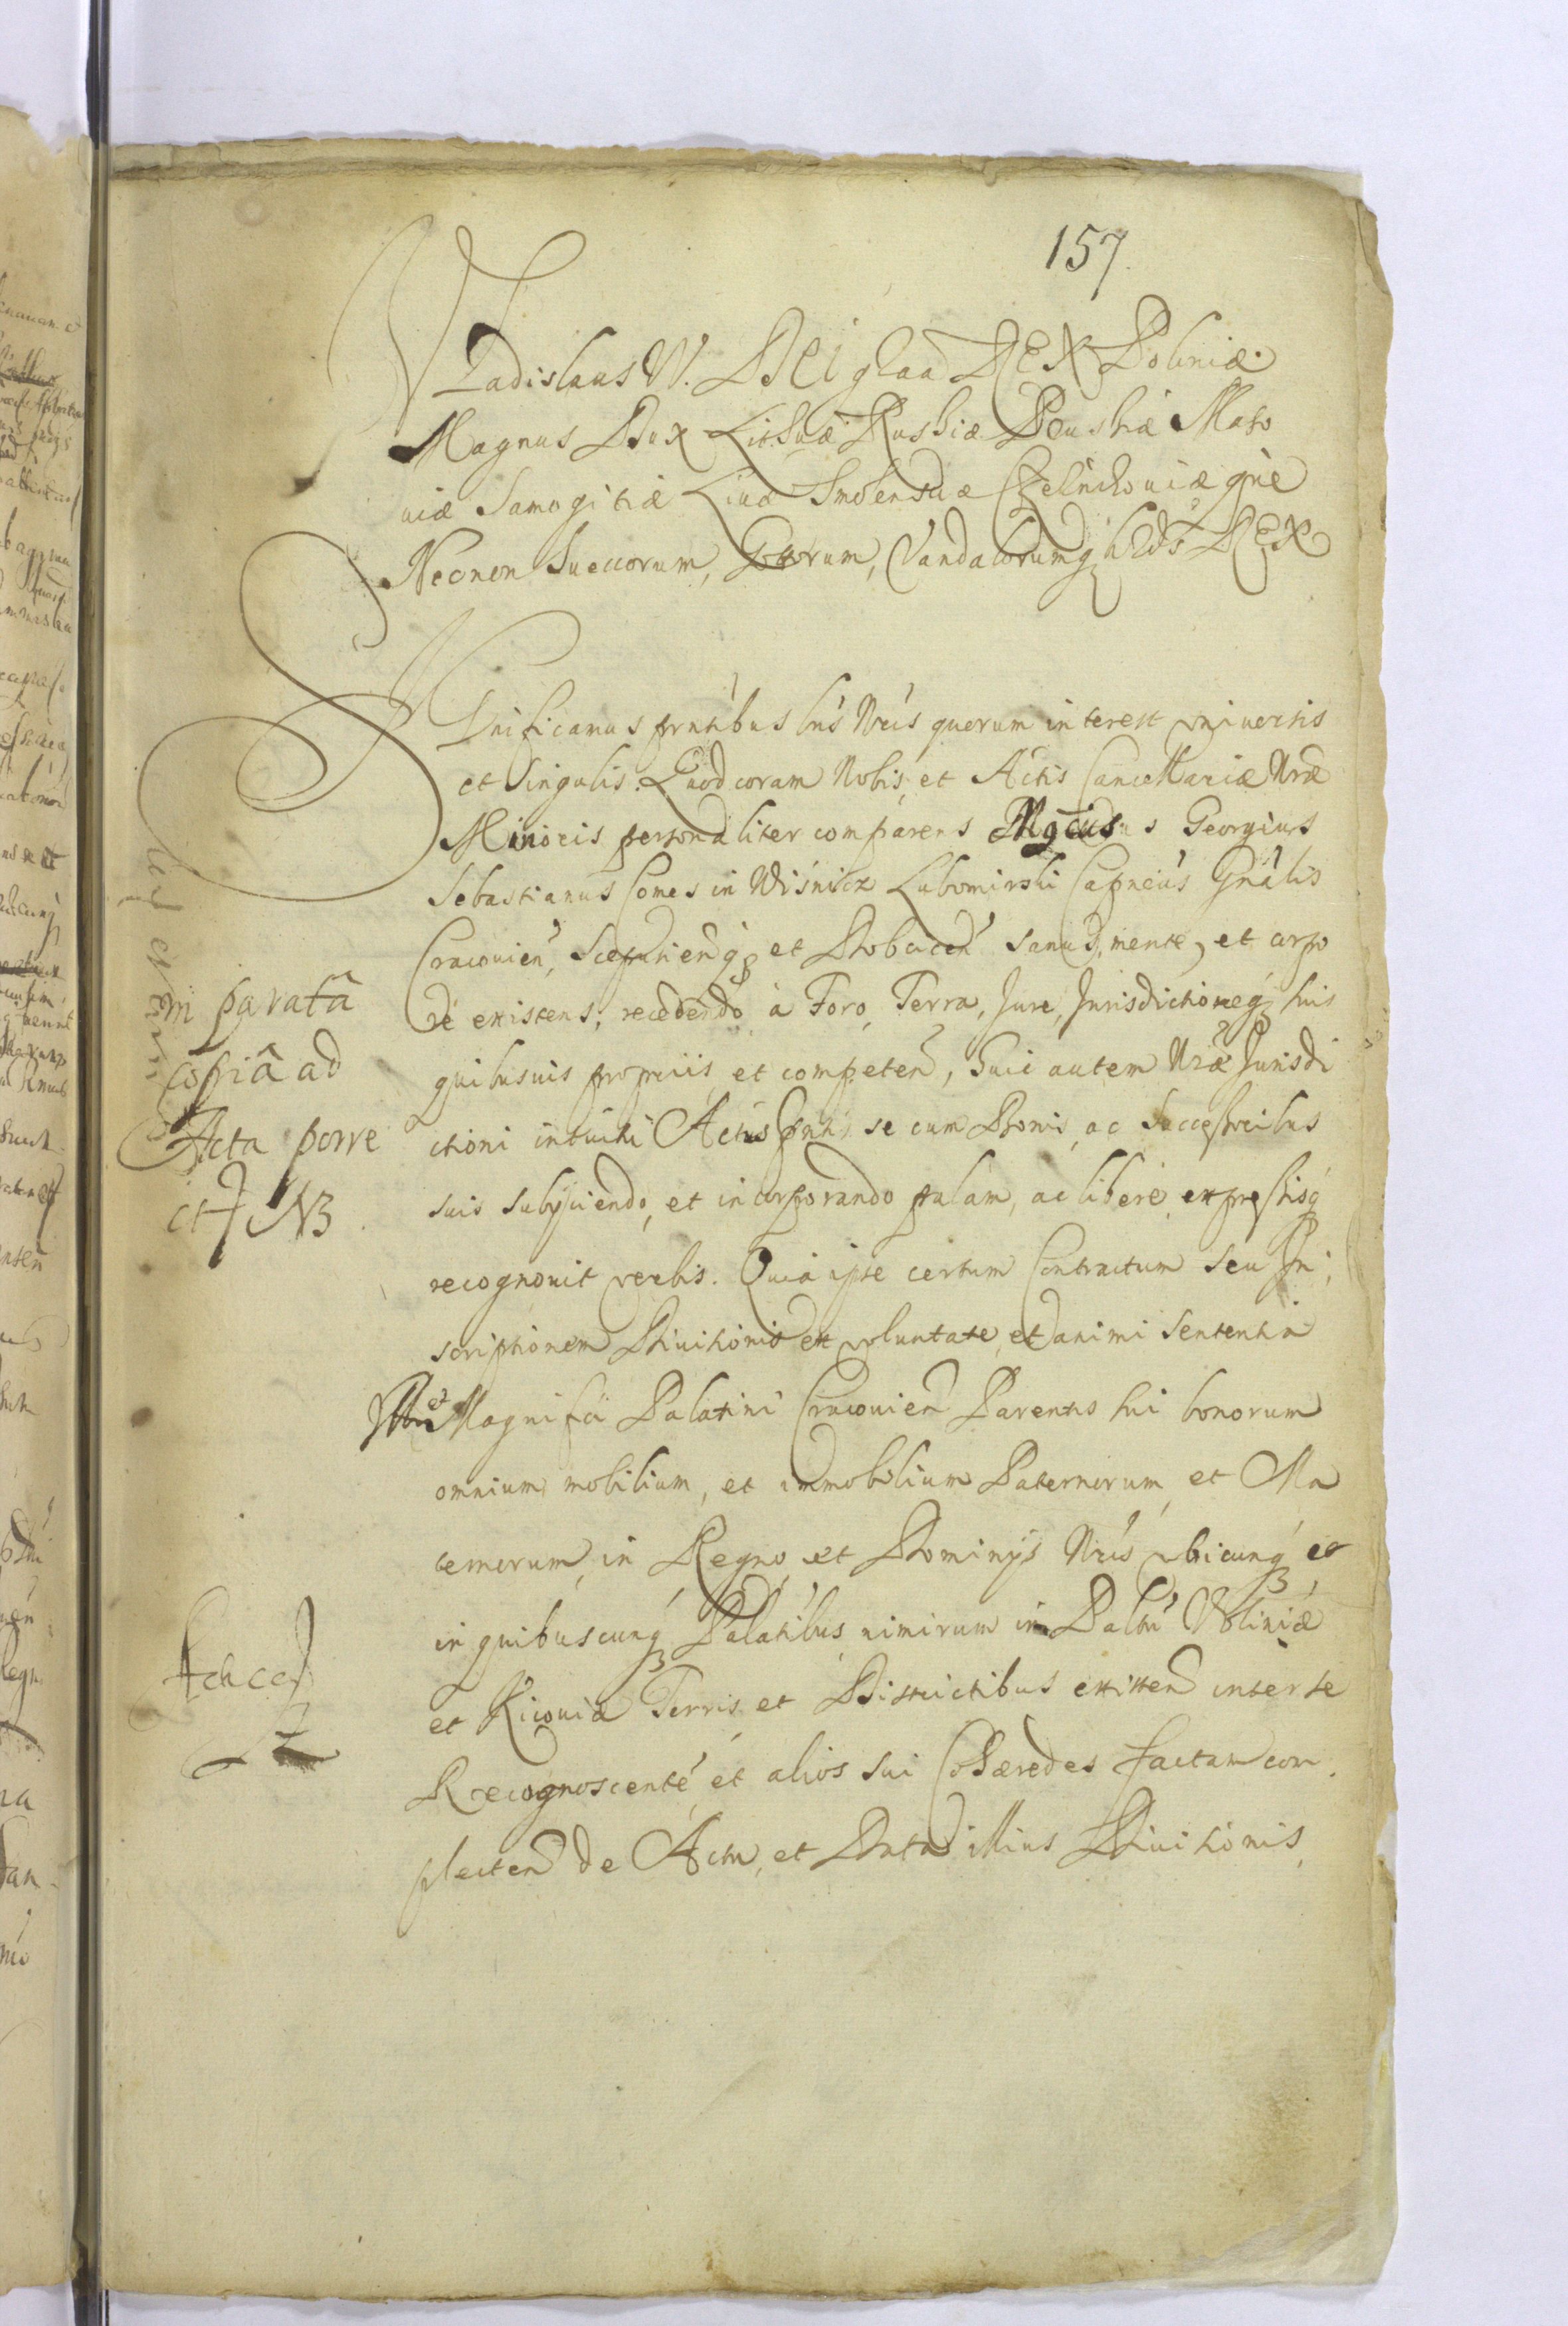 157.
Vladislaus IV. DEI graa REX Poloniæ
Magnus Dux Lithuæ Russiæ Prussiæ Maso
uiæ Samogitiæ Liuæ Smolensciæ Czernichouiæque
Necnon Suecorum, Gottorum, Vandalorumq hærds REX
Significamus pntibus lris Nris quorum interest vniuersis
et Singulis. Quod coram Nobis, et Actis Cancellariæ Nræ
Minoris personaliter comparens Mgcus Georgius
Sebastianus Comes in Wisnicz Lubomirski Capneus Gnalis
Cracouien, Scepusienq et Dobcicen Sanus mente, et corpo
re existens, recedendo à Foro, Terra, Jure, Jurisdictioneq suis
quibusuis proprijs et competen, huic autem Nræ Jurisdi
ctioni intuitu Actus pntis se cum Bonis, ac Successoribus
suis subijciendo, et incorporando palam, ac liberè expressisq
recognouit verbis. Quia ipse certum Contractum seu In,
scriptionem Diuisionis ex voluntate, et animi sententia
Illris et Magnifici Palatini Cracouien Parentis sui bonorum
omnium mobilium, et immobilium Paternorum, et Ma
ternorum, in Regno, et Dominijs Nris vbicunq et
in quibuscunq Palatibus nimirum in Paltu Voliniæ
et Kiouiæ Terris et Districtibus existen inter se
Recognoscente et alios sui Cohæredes factam com
plecten de Actu, et Data illius Diuisionis,
in parata
copiâ ad
Acta porre
cta NB